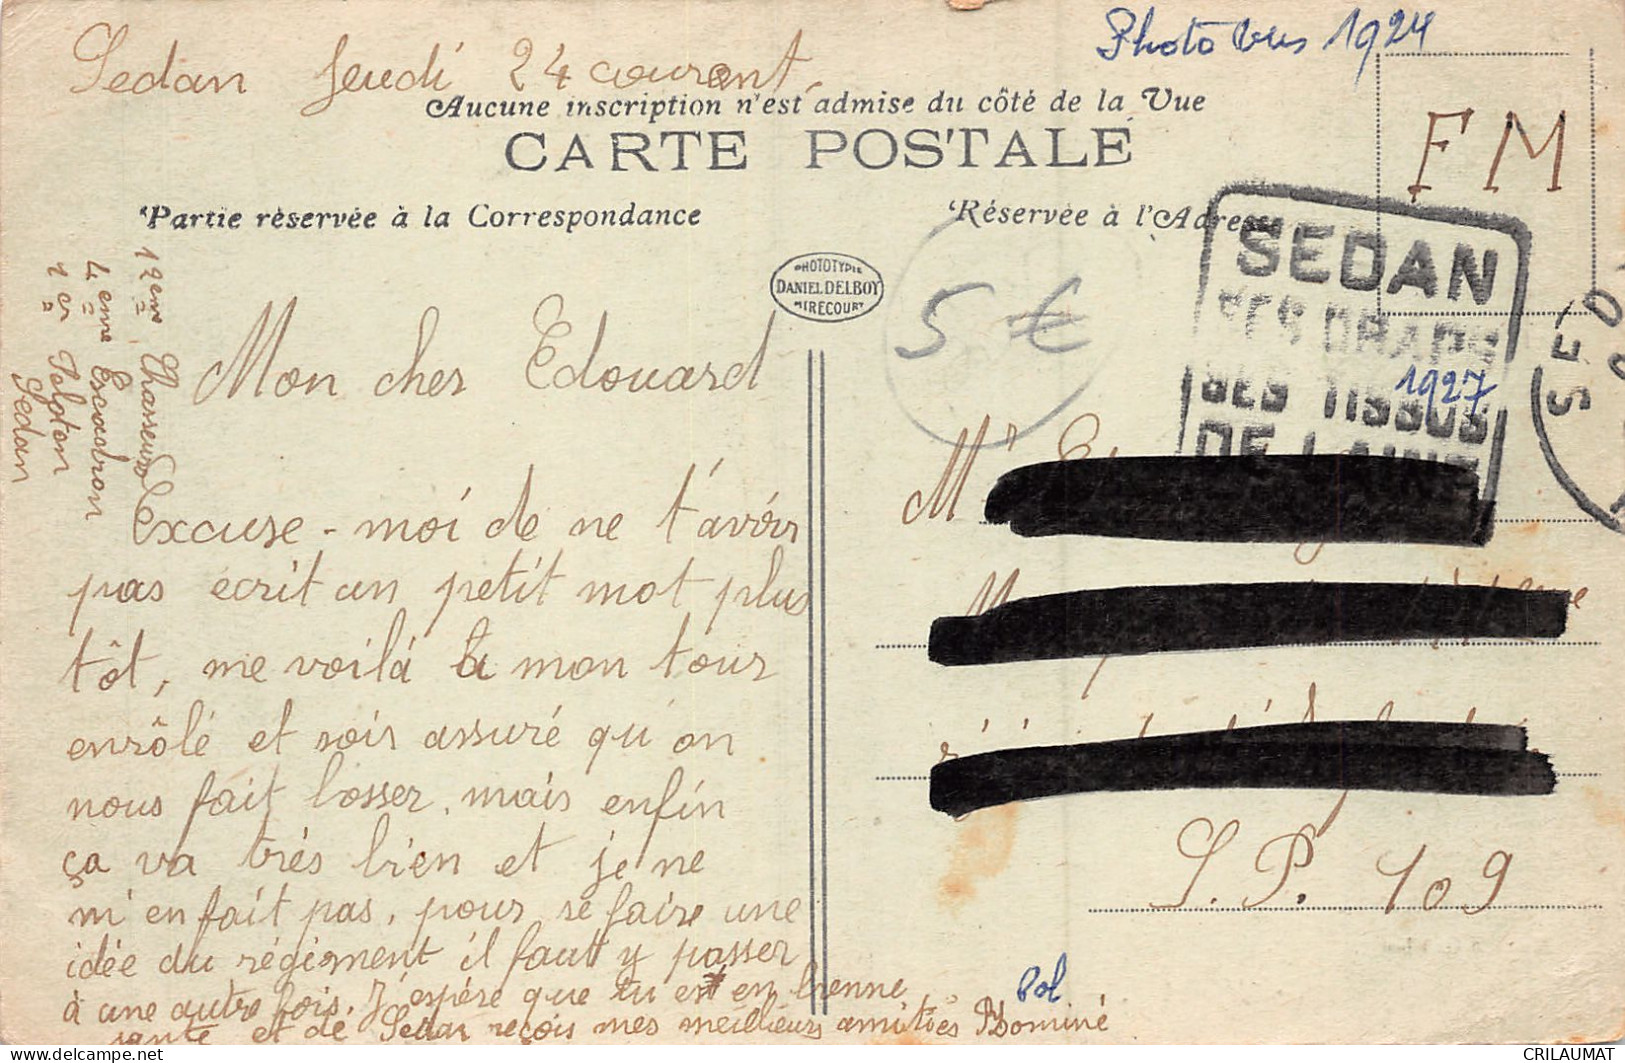 Photo vers 1924
Sedan Jeudi 24 courant
Aucune inscription n'est admise du côté de la Vue
CARTE POSTALE
FM
Partie réservée à la Correspondance
Réservée à l'Adresse
PHOTOTYPIE
DANIEL DELBOY
MIRECOURT
5 €
SEDAN
SES DRAPS
SES TISSUS
DE LAINE
1927
SED
12eme Chasseurs
4eme Escadron
1er Peloton
Sedan
Mon cher Edouard
Excuse-moi de ne t'avoir
pas écrit un petit mot plus
tôt, me voilà à mon tour
enrôlé et sois assuré qu'on
nous fait bosser, mais enfin
ça va très bien et je ne
m'en fait pas, pour se faire une
idée du régiment il faut y passer
à une autre fois. J'espère que tu es en bonne
santé et de Sedan reçois mes meilleurs amitiés
Mr
S.P. 109
Pol
CRILAUMAT